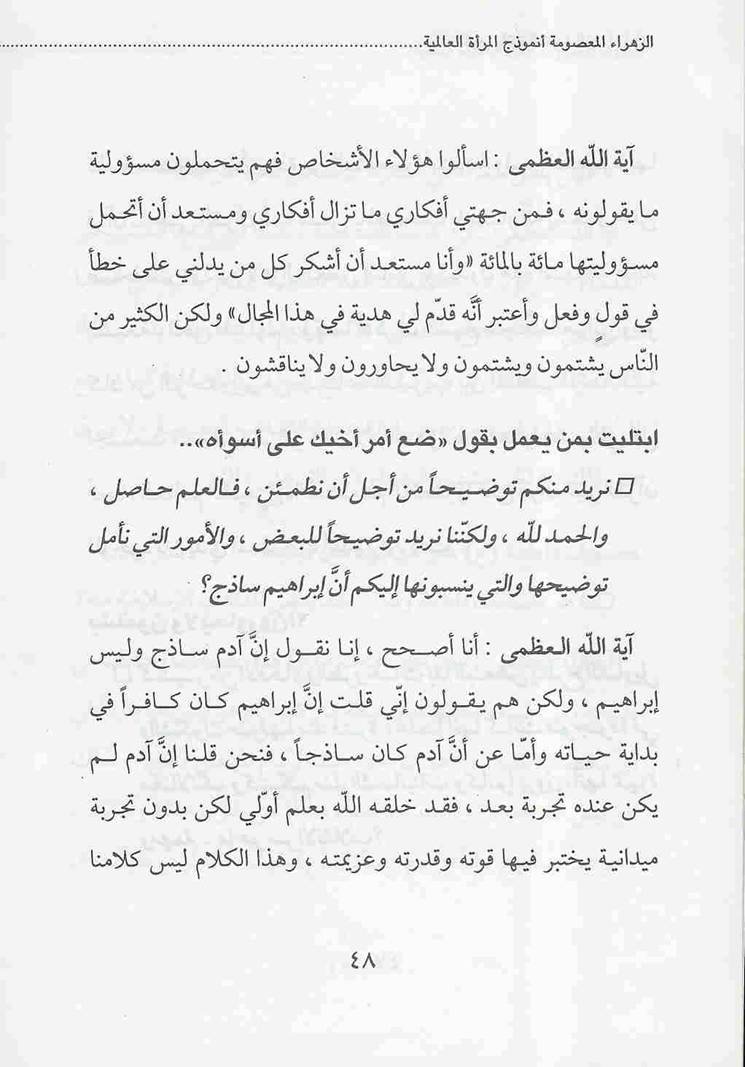 الزهراء المعصومة أنموذج المرأة العالمية................................................................
آية الله العظمى : اسألوا هؤلاء الأشخاص فهم يتحملون مسؤولية
ما يقولونه ، فمن جهتي أفكاري ما تزال أفكاري ومستعد أن أتحمل
مسؤوليتها مائة بالمائة «وأنا مستعد أن أشكر كل من يدلني على خطأ
في قولٍ وفعل وأعتبر أنَّه قدّم لي هدية في هذا المجال» ولكن الكثير من
النّاس يشتمون ويشتمون ولا يحاورون ولا يناقشون .
ابتليت بمن يعمل بقول «ضع أمر أخيك على أسوأه»..
□ نريد منكم توضيحاً من أجل أن نطمئن ، فالعلم حاصل ،
والحمد لله ، ولكنّنا نريد توضيحاً للبعض ، والأمور التي نأمل
توضيحها والتي ينسبونها إليكم أنَّ إبراهيم ساذج؟
آية الله العظمى : أنا أصحح ، إنا نقول إنَّ آدم ساذج وليس
إبراهيم ، ولكن هم يقولون إنّي قلت إنَّ إبراهيم كان كافراً في
بداية حياته وأمّا عن أنَّ آدم كان ساذجاً ، فنحن قلنا إنَّ آدم لم
يكن عنده تجربة بعد ، فقد خلقه الله بعلم أوّلي لكن بدون تجربة
ميدانية يختبر فيها قوته وقدرته وعزيمته ، وهذا الكلام ليس كلامنا
٤٨